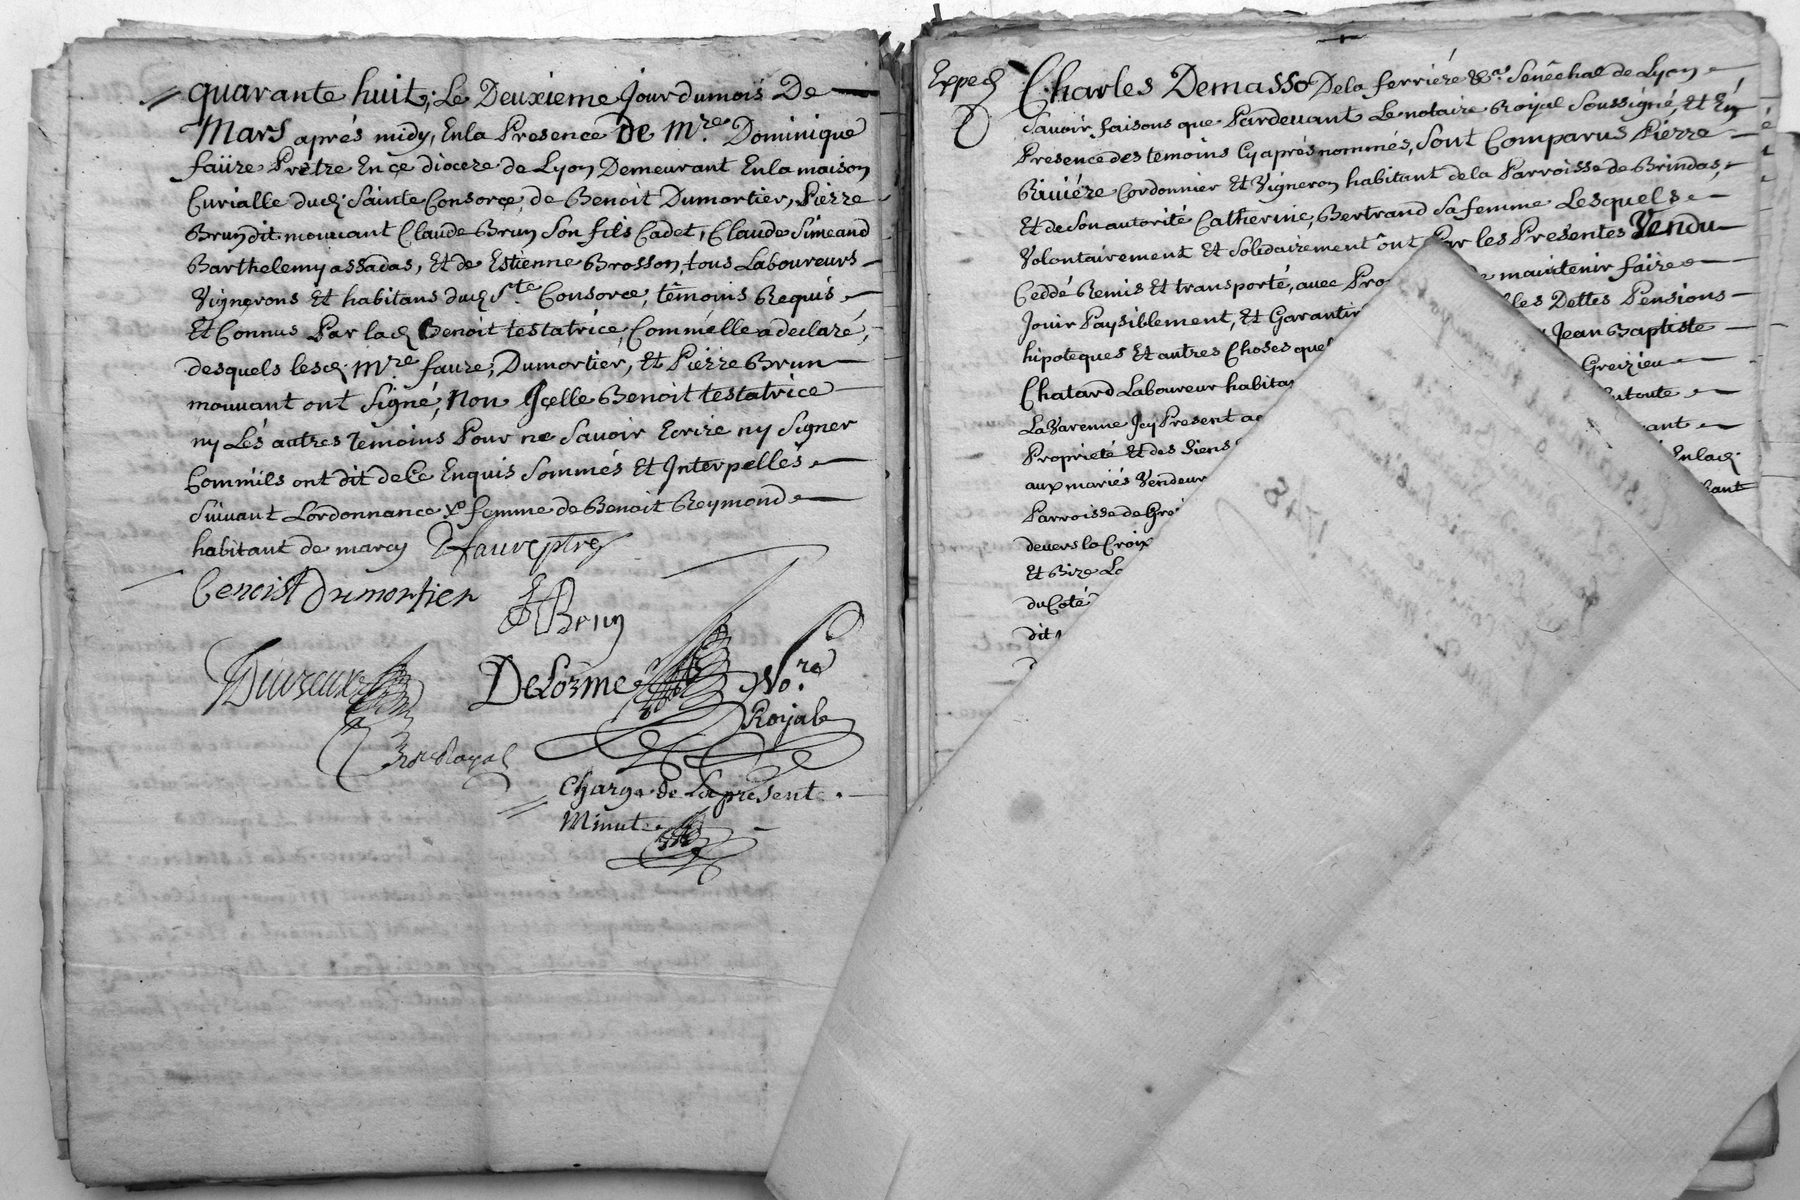 quarante huit; Le Deuxieme Jour du mois De
Mars aprés midy, En la Presence de Mre. Dominique
faüre Prêtre En çe dioceze de Lyon Demeurant En la maison
Curialle dud. Sainte Consorçe, de Benoit Dumortier, Pierre
Brun dit mouvant Claude Brun Son fils Cadet, Claude Simeand
Barthelemy assadas, Et de Estienne Brosson, tous Laboureurs
Vignerons Et habitans dud. Ste. Consorce, têmoins Requis
Et Connus Par lad. Benoit testatrice, Comm'elle a declaré,
desquels lesd. Mre faure, Dumortier, Et Pierre Brun
mouvant ont Signé, Non Jçelle Benoit testatrice
ny Lés autres Temoins Pour ne Savoir Ecrire ny Signer
Comm'ils ont dit de Ce Enquis Sommés Et Interpellés
Suivant Lordonnance femme de Benoit Reymond
habitant de marcy faure ptre
Benoist Dumortier
Brun
DeLorme No.re
Royal
Royal
Charge de La presente
Minute
Exped
Charles Demasso De la ferriere &a. Senêchal de Lyon
Savoir faisons que Pardevant Le notaire Royal Soussigné, Et En
Presence des temoins Cy aprés nommés, Sont Comparus Pierre
Riviére Cordonnier Et Vigneron habitant de la Parroisse de Brindas,
Et de Son autorité Catherine Bertrand Sa femme Lesquels
Volontairement Et Solidairement ônt Par les Presentes Vendu
Ceddé Remis Et transporté, avec Pro maintenir faire
Jouir Paysiblement, Et Garantir les Dettes Pensions
hipoteques Et autres Choses que Jean Baptiste
Chatard Laboureur habita Greizieu
La Varenne Jcy Present ac toute
Proprieté Et des Siens vant
aux mariés Vendeur En lad.
Parroisse de Gré
devers la Croix
Et Bize
du Coté
dit
1748